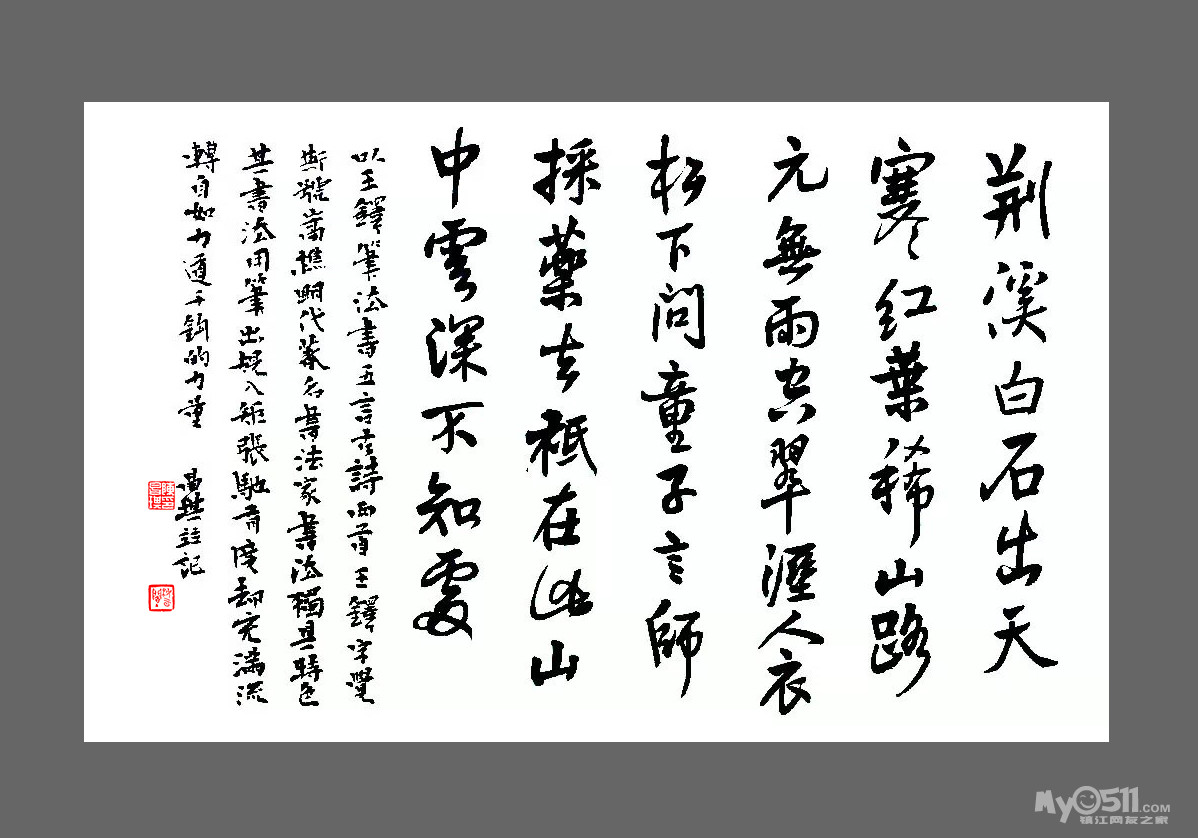 荆溪白石出天
寒红葉稀山路
元無雨空翠溼人衣
松下問童子言師
採藥去祗在此山
中雲深不知處
以王鐸筆法書五言古詩兩首王鐸字覺
斯號嵩樵明代著名書法家書法獨具特色
其書法用筆出規入矩張馳有度却充滿流
轉自如力道千鈞的力量 昌並記
MY0511.COM
镇江网友之家